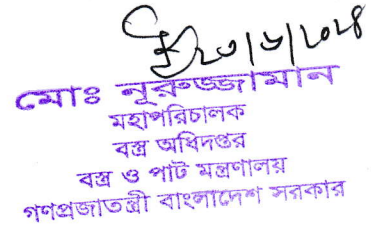 ২৩/৬/২০২৪
মোঃ নূরুজ্জামান
মহাপরিচালক
বস্ত্র অধিদপ্তর
বস্ত্র ও পাট মন্ত্রণালয়
গণপ্রজাতন্ত্রী বাংলাদেশ সরকার